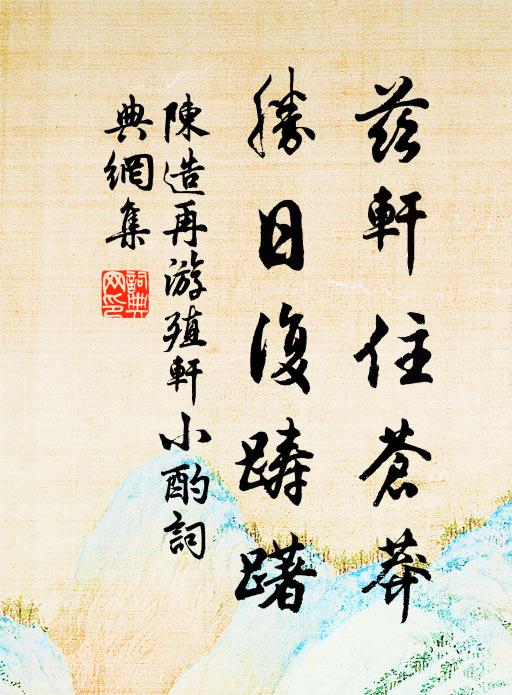 茲軒住蒼莽
勝日復踌躇
陳造再游殖軒小酌詞
典網集
詞典網印